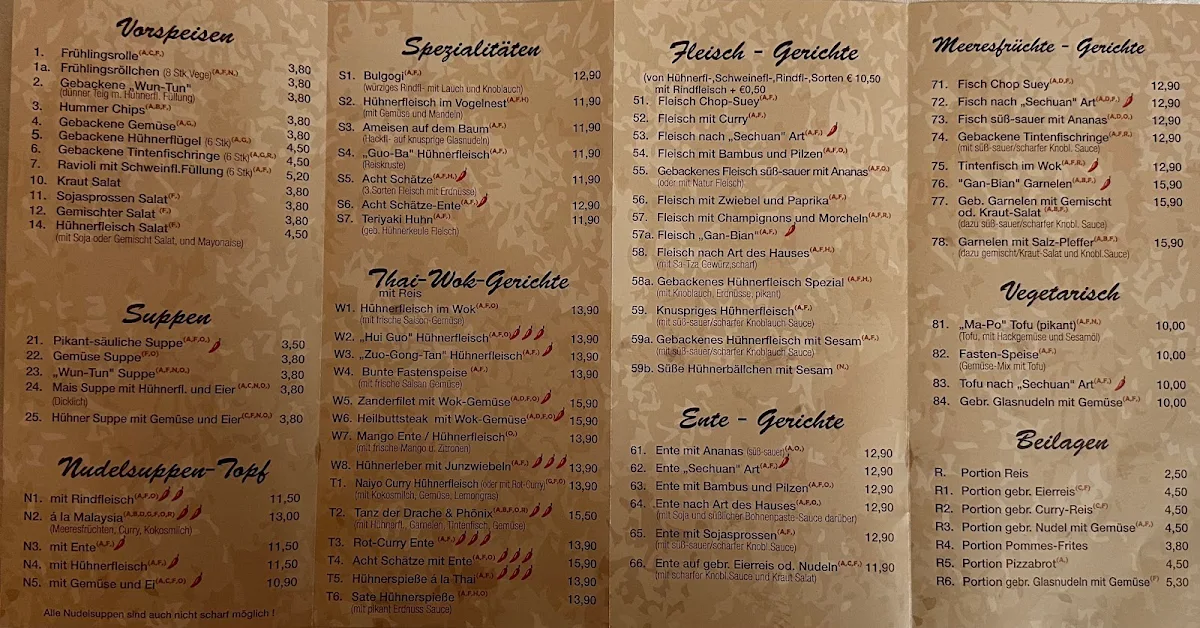 Vorspeisen
1. Frühlingsrolle(A,C,F,)
1a. Frühlingsröllchen (8 Stk Vege)(A,F,N,) 3,80
2. Gebackene „Wun-Tun" 3,80
(dünner Teig m. Hühnerfl. Füllung)
3. Hummer Chips(A,B,F,) 3,80
4. Gebackene Gemüse(A,G,) 3,80
5. Gebackene Hühnerflügel (6 Stk)(A,G,) 4,50
6. Gebackene Tintenfischringe (6 Stk)(A,G,R,) 4,50
7. Ravioli mit Schweinfl.Füllung (6 Stk)(A,F,) 5,20
10. Kraut Salat 3,80
11. Sojasprossen Salat(F,) 3,80
12. Gemischter Salat (F,) 3,80
14. Hühnerfleisch Salat(F,) 4,50
(mit Soja oder Gemischt Salat, und Mayonaise)
Suppen
21. Pikant-säuliche Suppe(A,F,O,) 3,50
22. Gemüse Suppe(F,O) 3,80
23. „Wun-Tun" Suppe(A,F,N,O,) 3,80
24. Mais Suppe mit Hühnerfl. und Eier(A,C,N,O,) 3,80
(Dicklich)
25. Hühner Suppe mit Gemüse und Eier(C,F,N,O,) 3,80
Nudelsuppen-Topf
N1. mit Rindfleisch(A,F,O) 11,50
N2. á la Malaysia(A,B,D,G,F,O,R) 13,00
(Meeresfrüchten, Curry, Kokosmilch)
N3. mit Ente(A,F,) 11,50
N4. mit Hühnerfleisch(A,F,) 11,50
N5. mit Gemüse und Ei(A,C,F,O) 10,90
Alle Nudelsuppen sind auch nicht scharf möglich !
Spezialitäten
S1. Bulgogi(A,F,) 12,90
(würziges Rindfl- mit Lauch und Knoblauch)
S2. Hühnerfleisch im Vogelnest(A,F,H) 11,90
(mit Gemüse und Mandeln)
S3. Ameisen auf dem Baum(A,F,) 11,90
(Hackfl- auf knusprige Glasnudeln)
S4. „Guo-Ba" Hühnerfleisch(A,F,) 11,90
(Reiskruste)
S5. Acht Schätze(A,F,H,) 11,90
(3.Sorten Fleisch mit Erdnüsse)
S6. Acht Schätze-Ente(A,F,) 12,90
S7. Teriyaki Huhn(A,F,) 11,90
(geb. Hühnerkeule Fleisch)
Thai-Wok-Gerichte
mit Reis
W1. Hühnerfleisch im Wok(A,F,O) 13,90
(mit frische Saison-Gemüse)
W2. „Hui Guo" Hühnerfleisch(A,F,O) 13,90
W3. „Zuo-Gong-Tan" Hühnerfleisch(A,F,) 13,90
W4. Bunte Fastenspeise (A,F,) 13,90
(mit frische Salsan Gemüse)
W5. Zanderfilet mit Wok-Gemüse(A,D,F,O) 15,90
W6. Heilbuttsteak mit Wok-Gemüse(A,D,F,O) 15,90
W7. Mango Ente / Hühnerfleisch(O,) 13,90
(mit frische Mango u. Zitronen)
W8. Hühnerleber mit Junzwiebeln(A,F,) 13,90
T1. Naiyo Curry Hühnerfleisch (oder mit Rot-Curry)(G,F,O) 13,90
(mit Kokosmilch, Gemüse, Lemongras)
T2. Tanz der Drache & Phönix(A,B,F,O,R) 15,50
(mit Hühnrfl., Garnelen, Tintenfisch, Gemüse)
T3. Rot-Curry Ente (A,F,) 13,90
T4. Acht Schätze mit Ente(A,F,O) 15,90
T5. Hühnerspieße á la Thai(A,F,) 13,90
T6. Sate Hühnerspieße (A,F,H,O) 13,90
(mit pikant Erdnuss Sauce)
Fleisch - Gerichte
(von Hühnerfl-,Schweinefl-,Rindfl-,Sorten € 10,50
mit Rindfleisch + €0,50)
51. Fleisch Chop-Suey(A,F,)
52. Fleisch mit Curry(A,F,)
53. Fleisch nach „Sechuan" Art(A,F,)
54. Fleisch mit Bambus und Pilzen(A,F,O,)
55. Gebackenes Fleisch süß-sauer mit Ananas(A,F,O,)
(oder mit Natur Fleisch)
56. Fleisch mit Zwiebel und Paprika(A,F,)
57. Fleisch mit Champignons und Morcheln(A,F,R,)
57a. Fleisch „Gan-Bian"(A,F,)
58. Fleisch nach Art des Hauses(A,F,H,)
(mit Sa-Tza Gewürz,scharf)
58a. Gebackenes Hühnerfleisch Spezial (A,F,H,)
(mit.Knoblauch, Erdnüsse, pikant)
59. Knuspriges Hühnerfleisch(A,F,)
(mit süß-sauer/scharfer Knoblauch Sauce)
59a. Gebackenes Hühnerfleisch mit Sesam(A,F,N,)
(mit süß-sauer/scharfer Knoblauch Sauce)
59b. Süße Hühnerbällchen mit Sesam (N,)
Ente - Gerichte
61. Ente mit Ananas (süß-sauer)(A,O,) 12,90
62. Ente „Sechuan" Art(A,F,) 12,90
63. Ente mit Bambus und Pilzen(A,F,O,) 12,90
64. Ente nach Art des Hauses(A,F,O,) 12,90
(mit Soja und süßlicher Bohnenpaste-Sauce darüber)
65. Ente mit Sojasprossen(A,F,) 12,90
(mit süß-sauer/scharfer Knobl.Sauce)
66. Ente auf gebr. Eierreis od. Nudeln(A,C,F,) 11,90
(mit scharfer Knobl.Sauce und Kraut Salat)
Meeresfrüchte - Gerichte
71. Fisch Chop Suey(A,D,F,) 12,90
72. Fisch nach „Sechuan" Art(A,D,F,) 12,90
73. Fisch süß-sauer mit Ananas(A,D,O,) 12,90
74. Gebackene Tintenfischringe(A,F,R,) 12,90
(mit süß-sauer/scharfer Knobl. Sauce)
75. Tintenfisch im Wok(A,F,R,) 12,90
76. "Gan-Bian" Garnelen(A,B,F,) 15,90
77. Geb. Garnelen mit Gemischt 15,90
od. Kraut-Salat (A,B,F,)
(dazu süß-sauer/scharfer Knobl. Sauce)
78. Garnelen mit Salz-Pfeffer(A,B,F,) 15,90
(dazu gemischt/Kraut-Salat und Knobl.Sauce)
Vegetarisch
81. „Ma-Po" Tofu (pikant)(A,F,H,) 10,00
(Tofu, mit Hackgemüse und Sesamöl)
82. Fasten-Speise(A,F,) 10,00
(Gemüse-Mix mit Tofu)
83. Tofu nach „Sechuan" Art(A,F,) 10,00
84. Gebr. Glasnudeln mit Gemüse(A,F,) 10,00
Beilagen
R. Portion Reis 2,50
R1. Portion gebr. Eierreis(C,F) 4,50
R2. Portion gebr. Curry-Reis(C,F) 4,50
R3. Portion gebr. Nudel mit Gemüse(A,F,) 4,50
R4. Portion Pommes-Frites 3,80
R5. Portion Pizzabrot(A,) 4,50
R6. Portion gebr. Glasnudeln mit Gemüse(F) 5,30